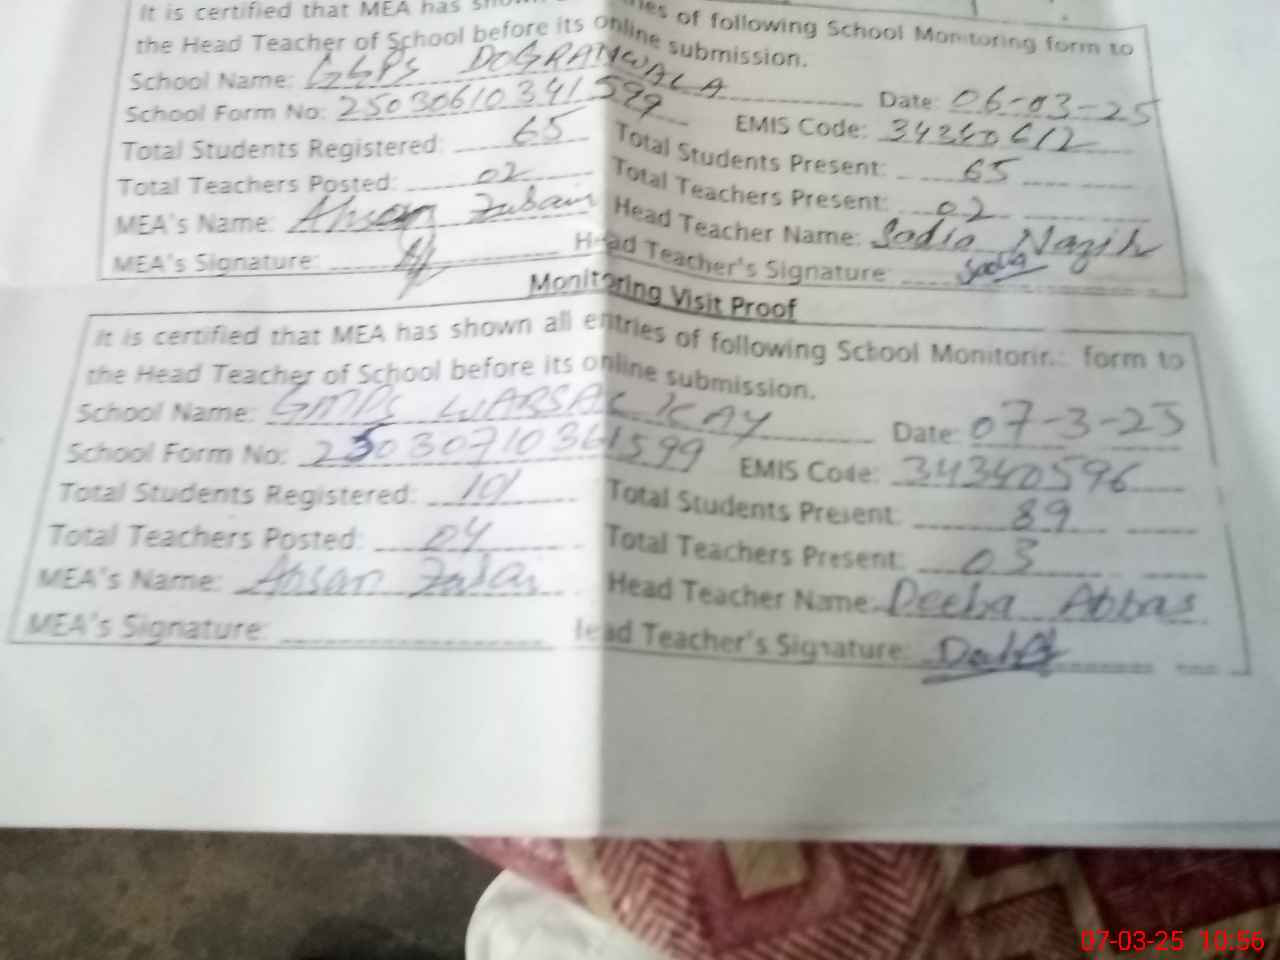 It is certified that MEA has entries of following School Monitoring form to
the Head Teacher of School before its online submission.
School Name: GGPS DOGRANWALA Date: 06-03-25
School Form No: 25030610341599 EMIS Code: 34340612
Total Students Registered: 65 Total Students Present: 65
Total Teachers Posted: 02 Total Teachers Present: 02
MEA's Name: Ahsan Zubair Head Teacher Name: Sadia Nazih
MEA's Signature: Head Teacher's Signature: Sadia
Monitoring Visit Proof
It is certified that MEA has shown all entries of following School Monitoring form to
the Head Teacher of School before its online submission.
School Name: GMPS WARSAL KAY Date: 07-3-25
School Form No: 25030710361599 EMIS Code: 34340596
Total Students Registered: 101 Total Students Present: 89
Total Teachers Posted: 04 Total Teachers Present: 03
MEA's Name: Ahsan Zubai Head Teacher Name: Deeba Abbas
MEA's Signature: Head Teacher's Signature:
07-03-25 10:56